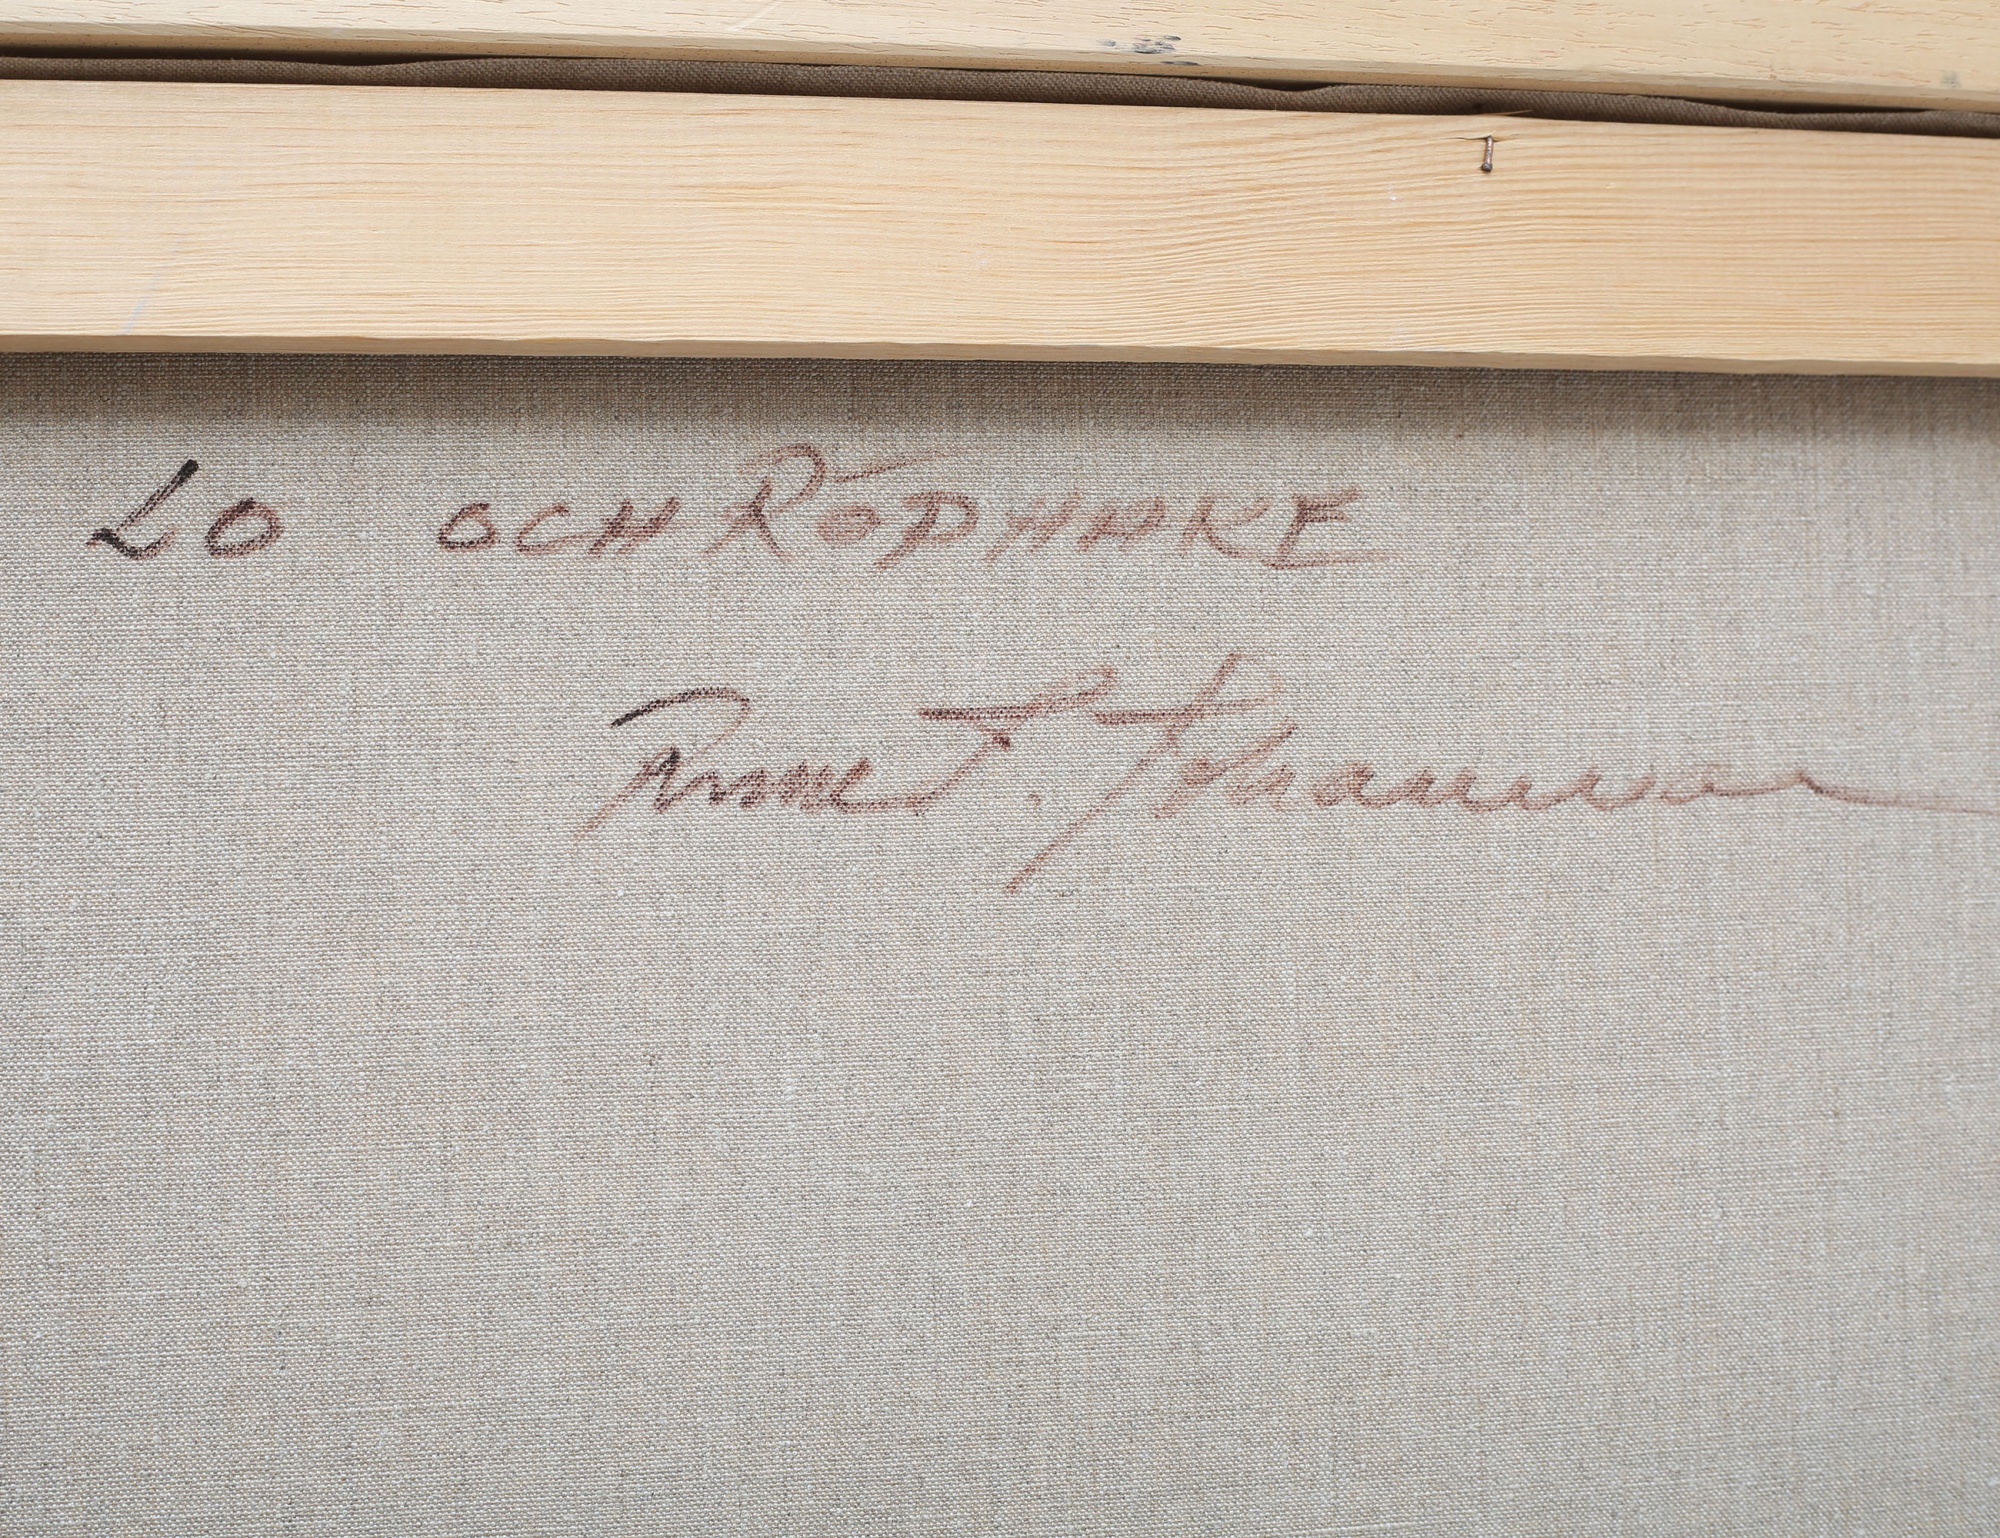 LO OCH RÖDHAKE
Arne L. Johansson